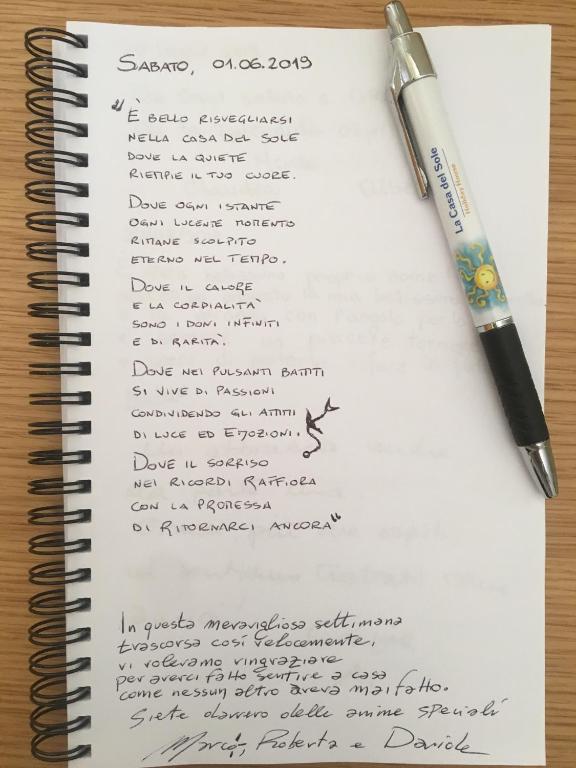 SABATO, 01.06.2019
"È BELLO RISVEGLIARSI
NELLA CASA DEL SOLE
DOVE LA QUIETE
RIEMPIE IL TUO CUORE.
DOVE OGNI ISTANTE
OGNI LUCENTE MOMENTO
RIMANE SCOLPITO
ETERNO NEL TEMPO.
DOVE IL CALORE
E LA CORDIALITÀ
SONO I DONI INFINITI
E DI RARITÀ.
DOVE NEI PULSANTI BATTITI
SI VIVE DI PASSIONI
CONDIVIDENDO GLI ATTIMI
DI LUCE ED EMOZIONI.
DOVE IL SORRISO
NEI RICORDI RAFFIORA
CON LA PROMESSA
DI RITORNARCI ANCORA"
In questa meravigliosa settimana
trascorsa così velocemente,
vi volevamo ringraziare
per averci fatto sentire a casa
come nessun altro aveva mai fatto.
Siete davvero delle anime speciali
Marco, Roberta e Davide
La Casa del Sole
Holiday Home